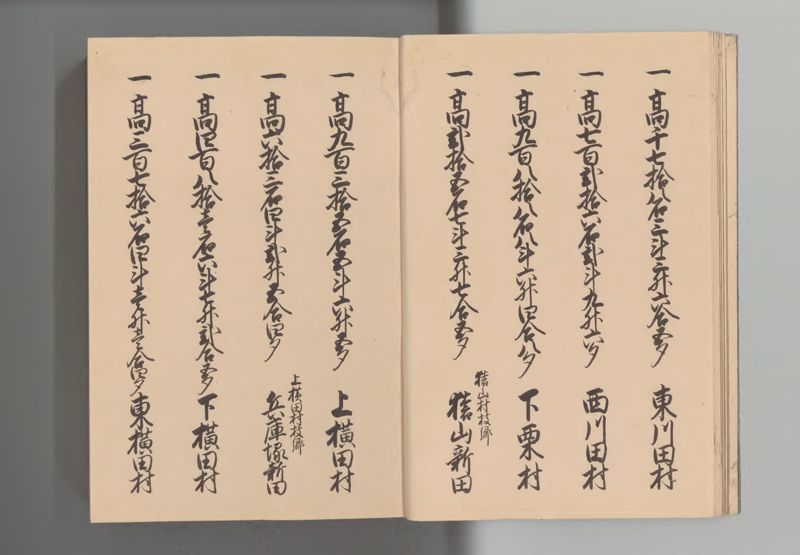 一 高千七拾八石三斗三升六合五夕 東川田村
一 高七百弐拾六石弐斗九升六夕 西川田村
一 高九百八拾八石八斗六升四合八夕 下栗村
猿山村枝郷
一 高弐拾五石七斗三升七合五夕 猿山新田
一 高九百三拾五石五斗六升五夕 上横田村
上横田村枝郷
一 高六拾三石四斗弐升五合四夕 兵庫塚新田
一 高四百八拾壱石六斗七升弐合五夕 下横田村
一 高三百七拾六石四斗壱升壱合四夕 東横田村